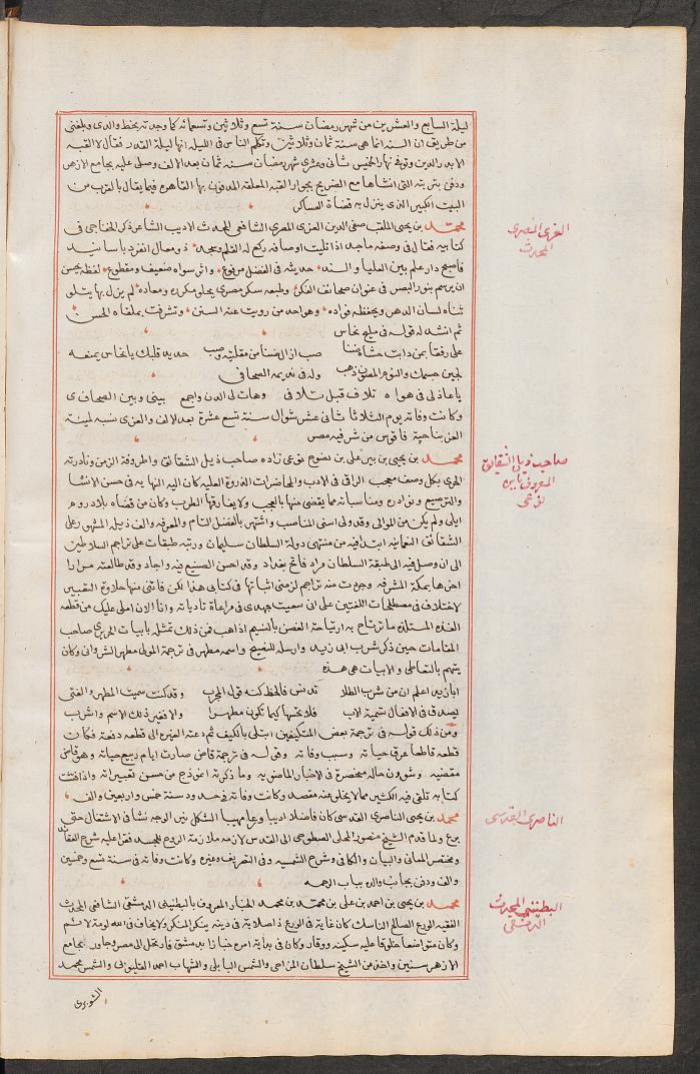 ليلة السابع والعشرين من شهر رمضان سنة تسع وثلاثين وتسعمائة كما وجدته بخط والدي وبلغني
من طريق ان السنة انما هي سنة ثمان وثلاثين وتكلم الناس في الليلة انها ليلة القدر فقال لا القبه
الا بدر الدين وتوفي نهار الخميس ثاني وعشري شهر رمضان سنة ثمان بعد الالف وصلى عليه بجامع الازهر
ودفن بتربته التي انشاها مع الضريح بجوار القبة المعلقة المدفون بها القاهره فيما يقال بالقرب من
البيت الكبير الذي ينزل به قضاة العساكر
محمد بن يحيى الملقب صفي الدين العزي المصري الشافعي المحدث الاديب الشاعر ذكره الخفاجي في
كتابيه فقال في وصفه ماجد اذا تليت اوصافه ركع له القلم وسجد ذو معال انفرد باسانيد
فاصبح دار علم بين العليا والسند حديثه في الفضل مرفوع واثر سواه ضعيف ومقطوع لفظه يحسن
ان يرسم بنور البصر في عنوان صحائف الفكر وطبعه سكر مصري يحلو مكرره ومعاده لم يزل بها يتلو
ثناه لسان الدهر ويحفظه فواده وهو احد من رويت عنه السنن وتشرفت بملقاه الحسن
ثم انشد له قوله في مليح نحاس
على رفقا بمن ذابت حشاشته صب اذا الضنا من مقلتيه وصب حديد قلبك يا نحاس يمنعه
لجين جسمك والنوم المعلق ذهب وله في غريمه الصحافي
يا عاذلي في هواه تلاف قبل تلافي وهات لي الدن واجمع بيني وبين الصحافي
وكانت وفاته يوم الثلاثا ثاني عشر شوال سنة تسع عشرة بعد الالف والعزي نسبه لمنية
العز بناحية فاقوس من شرقية مصر
محمد بن يحيى بن پير علي بن نصوح نوعي زاده صاحب ذيل الشقائق واطروفة الزمن ونادرته
الحري بكل وصف معجب الراقي في الادب والمحاضرات الذروة العلية كان اليه النهاية في حسن الانشا
والترصيع ونوادره ومناسباته مما يقضى منها بالعجب ولا يفارقها الطرب وكان من قضاة بلاد روم
ايلي ولم يكن من الموالي وقد ولي اسنى المناصب واشتهر بالفضل التام والمعرفة والف ذيله المشهور على
الشقائق النعمانيه ابتدا فيه من منتهى دولة السلطان سليمان ورتبه طبقات على تراجم السلاطين
الى ان وصل فيه الى طبقة السلطان مراد فاتح بغداد وقد احسن الصنيع فيه واجاد وقد طالعته مرارا
اخرها بمكة المشرفه وجردت منه تراجم لزمني اثباتها في كتابي هذا لكن فاتني منها حلاوة التعبير
لاختلاف في مصطلحات اللغتين على ان سعيت جهدي في مراعاة تادياته وانا الان املي عليك من قطعه
الفذه المستلذه ما ترتاح به ارتياحة الغصن بالنسيم اذا هب فمن ذلك تمثله بابيات الحريري صاحب
المقامات حين ذكر شرب ابي زيد وارسله للنفيح واسمه مطهر في ترجمة المولى مطهر الشرواني وكان
يتهم بالتعاطي والابيات هي هذه
ابا زيد اعلم ان من شرب الطلا تدنس فالحظ كنه قول المجرب وقد كنت سميت المطهر والفتى
يصدق في الافعال تسمية الاب فلا تحتسها كيما تكون مطهرا والا فغير ذلك الاسم واشرب
ومن ذلك قوله في ترجمة بعض المتكيفين ابتلي بالكيف ثم ادعته الغيره الى قطعه دفعة فكانت
قطعه قاطعا عرق حياته وسبب وفاته وقوله في ترجمة قاض صارت ايام ربيع حياته وهو قاض
مقضيه وشؤون حاله منحصرة في الاخبار الماضويه وما ذكرته انموذج من حسن تعبيراته واذا فتشت
كتابه تلقى فيه الكثير مما لا يخلى عنه مقصد وكانت وفاته في حدود سنة خمس واربعين والف
محمد بن يحيى الناصري القدسي كان فاضلا اديبا وعالما مهيبا الشكل نير الوجه نشا في الاشتغال حتى
برع ولما قدم الشيخ منصور المحلي السطوحي الى القدس لازمه ملازمة الروح للجسد فقرا عليه شرح العقائد
ومختصر المعاني والبيان والكافي وشرح الشمسيه وفي التعريف وغيره وكانت وفاته في سنة تسع وخمسين
والف ودفن بجانب والده بباب الرحمه
محمد بن يحيى بن احمد بن علي بن محمد بن محمد الخباز المعروف بالبطنيني الدمشقي الشافعي المحدث
الفقيه الورع الصالح الناسك كان غاية في الورع ذا صلابة في دينه ينكر المنكر ولا يخاف في الله لومة لائم
وكان متواضعا خلوقا عليه سكينه ووقار وكان في بداية امره خبازا بدمشق فارتحل الى مصر وجاور بجامع
الازهر سنين واخذ عن الشيخ سلطان المزاحي والشمس البابلي والشهاب احمد القليوبي والشمس محمد
الشوبري
العزي المصري
المحدث
صاحب ذيل الشقائق
المعروف بابن
نوعي
الناصري القدسي
البطنيني المحدث
الدمشقي